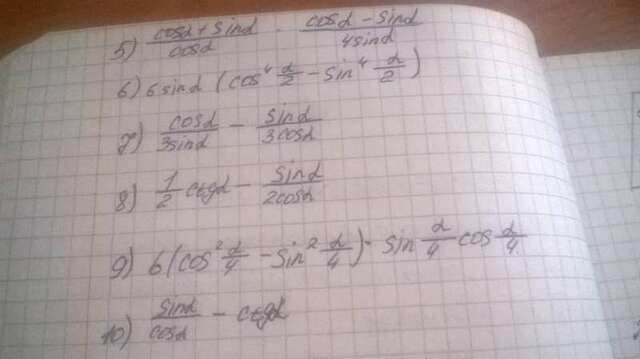 5) (cosα + sinα)/cosα · (cosα − sinα)/(4sinα)
6) 6 sinα (cos⁴ α/2 − sin⁴ α/2)
7) cosα/(3sinα) − sinα/(3cosα)
8) 1/2 ctgα − sinα/(2cosα)
9) 6(cos² α/4 − sin² α/4) · sin α/4 cos α/4
10) sinα/cosα − ctgα